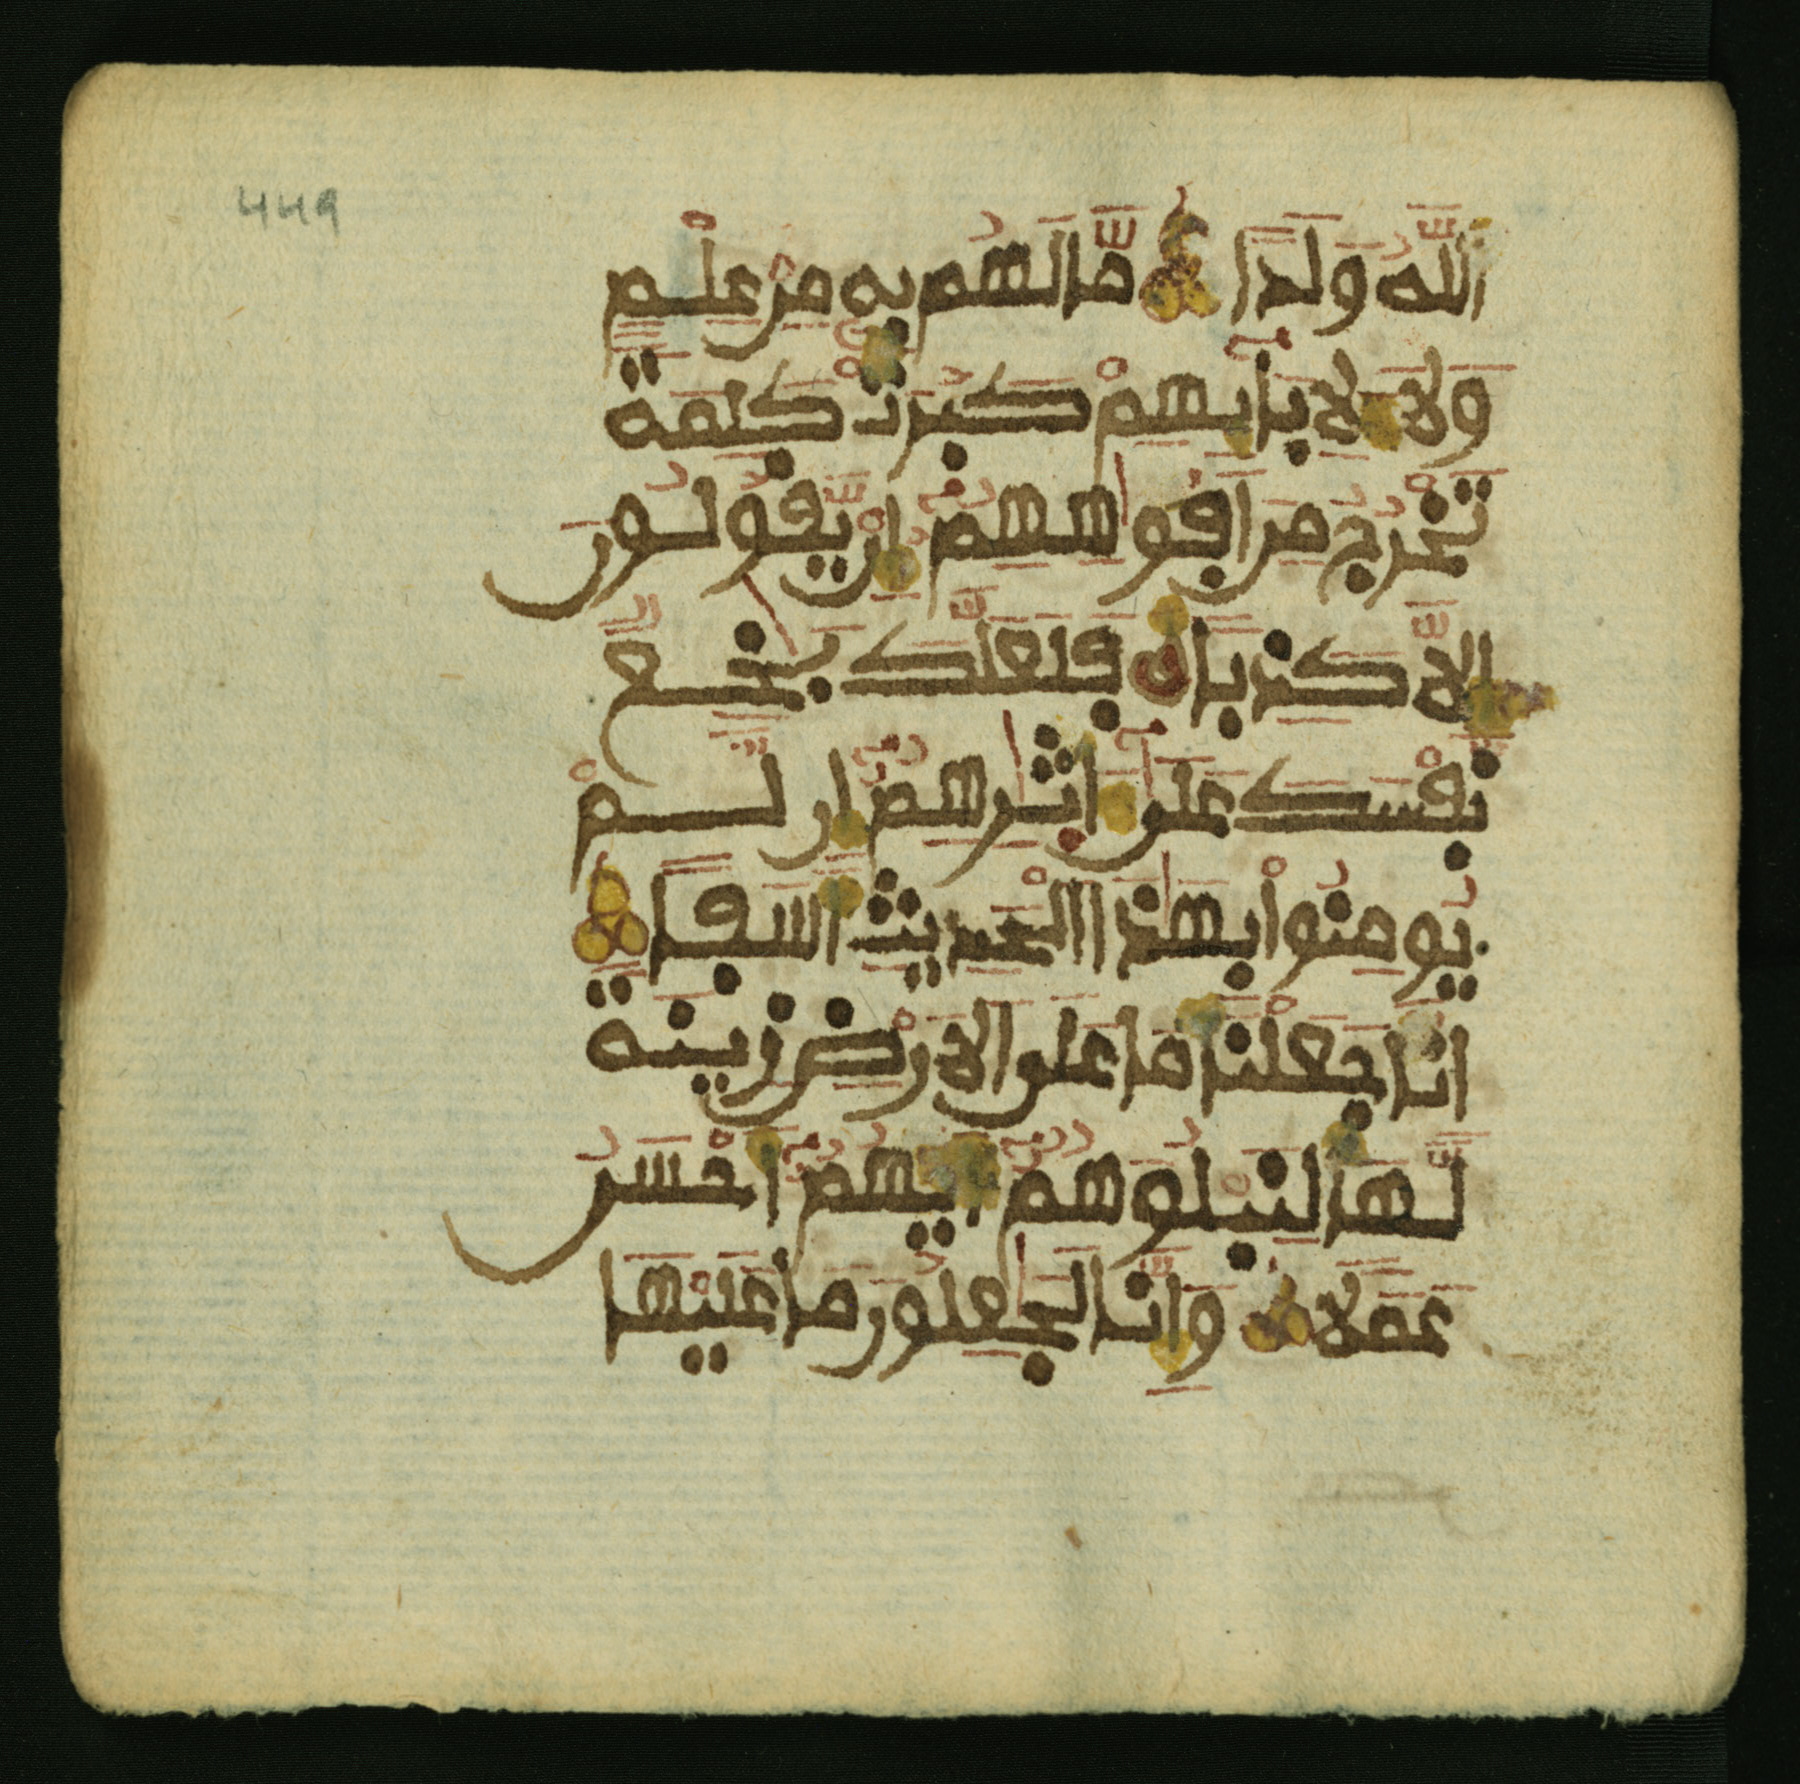 449
الله ولدا ما لهم به من علم
ولا لابايهم كبرت كلمة
تخرج من افوههم ان يقولون
الا كذبا فلعلك بخع
نفسك على اثرهم ان لم
يومنوا بهذا الحديث اسفا
انا جعلنا ما على الارض زينة
لها لنبلوهم ايهم احسن
عملا وانا لجعلون ما عليها